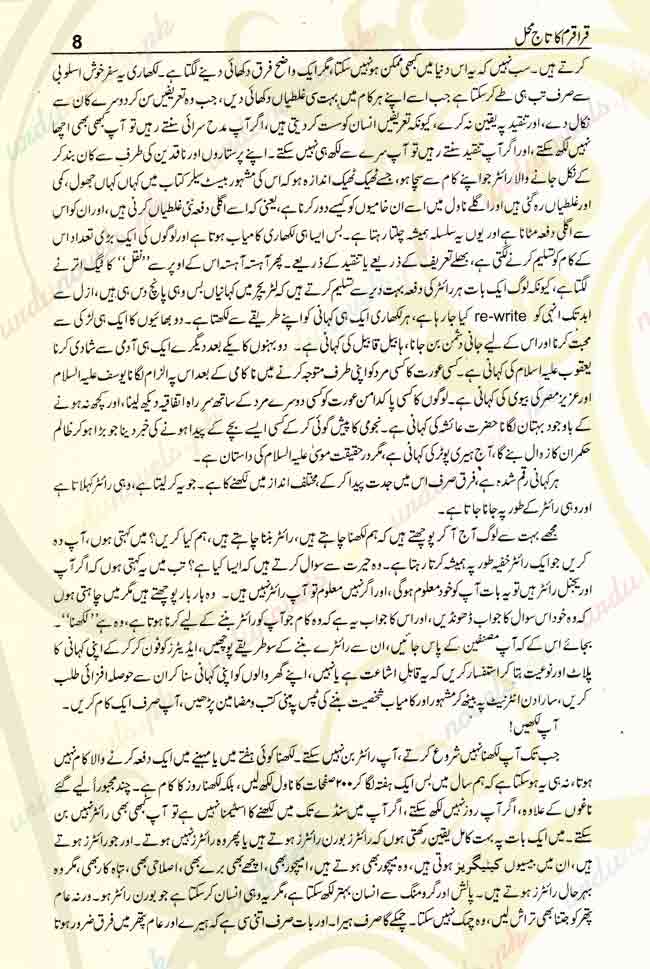 قراقرم کا تاج محل
8
کرتے ہیں۔ سب نہیں کہ یہ اس دنیا میں کبھی ممکن ہو نہیں سکتا، مگر ایک واضح فرق دکھائی دینے لگتا ہے۔ لکھاری یہ سفر خوش اسلوبی
سے صرف تب ہی طے کر سکتا ہے جب اسے اپنے ہر کام میں بہت سی غلطیاں دکھائی دیں، جب وہ تعریفیں سن کر دوسرے کان سے
نکال دے، اور تنقید پہ یقین نہ کرے، کیونکہ تعریفیں انسان کو سست کر دیتی ہیں، اگر آپ مدح سرائی سنتے رہیں تو آپ کبھی بھی اچھا
نہیں لکھ سکتے، اور اگر آپ تنقید سنتے رہیں تو آپ سرے سے لکھ ہی نہیں سکتے۔ اپنے پرستاروں اور ناقدین کی طرف سے کان بند کر
کے نکل جانے والا رائٹر جو اپنے کام سے سچا ہو، جسے ٹھیک ٹھیک اندازہ ہو کہ اس کی مشہور بیسٹ سیلر کتاب میں کہاں کہاں جھول، کمی
اور غلطیاں رہ گئی ہیں اور اگلے ناول میں اسے ان خامیوں کو کیسے دور کرنا ہے، یعنی کہ اسے اگلی دفعہ نئی غلطیاں کرنی ہیں، اور ان کو اس
سے اگلی دفعہ مٹانا ہے اور یوں یہ سلسلہ ہمیشہ چلتا رہتا ہے۔ بس ایسا ہی لکھاری کامیاب ہوتا ہے اور لوگوں کی ایک بڑی تعداد اس
کے کام کو تسلیم کرنے لگتی ہے، بھلے تعریف کے ذریعے یا تنقید کے ذریعے۔ پھر آہستہ آہستہ اس کے اوپر سے ''نقل'' کا ٹیگ اترنے
لگتا ہے، کیونکہ لوگ ایک بات ہر رائٹر کی دفعہ بہت دیر سے تسلیم کرتے ہیں کہ لٹریچر میں کہانیاں بس وہی پانچ دس ہی ہیں، ازل سے
ابد تک انہی کو re-write کیا جا رہا ہے، ہر لکھاری ایک ہی کہانی کو اپنے طریقے سے لکھتا ہے۔ دو بھائیوں کا ایک ہی لڑکی سے
محبت کرنا اور اس کے لیے جانی دشمن بن جانا، ہابیل قابیل کی کہانی ہے۔ دو بہنوں کا یکے بعد دیگرے ایک ہی آدمی سے شادی کرنا
یعقوب علیہ السلام کی کہانی ہے۔ کسی عورت کا کسی مرد کو اپنی طرف متوجہ کرنے میں ناکامی کے بعد اس پہ الزام لگانا یوسف علیہ السلام
اور عزیز مصر کی بیوی کی کہانی ہے۔ لوگوں کا کسی پاکدامن عورت کو کسی دوسرے مرد کے ساتھ سرِ راہ اتفاقیہ دیکھ لینا، اور کچھ نہ ہونے
کے باوجود بہتان لگانا حضرت عائشہ کی کہانی ہے۔ نجومی کا پیش گوئی کر کے کسی ایسے بچے کے پیدا ہونے کی خبر دینا جو بڑا ہو کر ظالم
حکمران کا زوال بنے گا، آج ہیری پوٹر کی کہانی ہے، مگر در حقیقت موسیٰ علیہ السلام کی داستان ہے۔
ہر کہانی رقم شدہ ہے، فرق صرف اس میں جدت پیدا کر کے مختلف انداز میں لکھنے کا ہے۔ جو یہ کر لیتا ہے، وہی رائٹر کہلاتا ہے
اور وہی رائٹر کے طور پہ جانا جاتا ہے۔
مجھے بہت سے لوگ آج آ کر پوچھتے ہیں کہ ہم لکھنا چاہتے ہیں، رائٹر بننا چاہتے ہیں، ہم کیا کریں؟ میں کہتی ہوں، آپ وہ
کریں جو ایک رائٹر خفیہ طور پہ ہمیشہ کرتا رہتا ہے۔ وہ حیرت سے سوال کرتے ہیں کہ ایسا کیا ہے؟ تب میں یہ کہتی ہوں کہ اگر آپ
اوریجنل رائٹر ہیں تو یہ بات آپ کو خود معلوم ہو گی، اور اگر نہیں معلوم تو آپ رائٹر نہیں ہیں۔ وہ بار بار پوچھتے ہیں مگر میں چاہتی ہوں
کہ وہ خود اس سوال کا جواب ڈھونڈیں، اور اس کا جواب یہ ہے کہ وہ کام جو آپ کو رائٹر بننے کے لیے کرنا ہوتا ہے، وہ ہے ''لکھنا''۔
بجائے اس کے کہ آپ مصنفین کے پاس جائیں، ان سے رائٹر بننے کے سو طریقے پوچھیں، ایڈیٹرز کو فون کر کر کے اپنی کہانی کا
پلاٹ اور نوعیت بتا کر استفسار کریں کہ یہ قابلِ اشاعت ہے یا نہیں، اپنے گھر والوں کو اپنی کہانی سنا کر ان سے حوصلہ افزائی طلب
کریں، سارا دن انٹرنیٹ پہ بیٹھ کر مشہور اور کامیاب شخصیت بننے کی ٹپس پہ مبنی کتب و مضامین پڑھیں، آپ صرف ایک کام کریں۔
آپ لکھیں!
جب تک آپ لکھنا نہیں شروع کرتے، آپ رائٹر بن نہیں سکتے۔ لکھنا کوئی ہفتے میں یا مہینے میں ایک دفعہ کرنے والا کام نہیں
ہوتا، نہ ہی یہ ہو سکتا ہے کہ ہم سال میں بس ایک ہفتہ لگا کر ۲۰۰ صفحات کا ناول لکھ لیں، بلکہ لکھنا روز کا کام ہے۔ چند مجبوراً لیے گئے
ناغوں کے علاوہ، اگر آپ روز نہیں لکھ سکتے، اگر آپ میں سنڈے تک میں لکھنے کا اسٹیمنا نہیں ہے تو آپ کبھی بھی رائٹر نہیں بن
سکتے۔ میں ایک بات پہ بہت کامل یقین رکھتی ہوں کہ رائٹرز بورن رائٹرز ہوتے ہیں یا پھر وہ رائٹرز نہیں ہوتے۔ اور جو رائٹرز ہوتے
ہیں، ان میں بیسیوں کیٹیگریز ہوتی ہیں، وہ میچور بھی ہوتے ہیں، امیچور بھی، اچھے بھی برے بھی، اصلاحی بھی، تباہ کار بھی، مگر وہ
بہرحال رائٹرز ہوتے ہیں۔ پالش اور گرومنگ سے انسان بہتر لکھ سکتا ہے، مگر یہ وہی انسان کر سکتا ہے جو بورن رائٹر ہو۔ ورنہ عام
پتھر کو جتنا بھی تراش لیں، وہ چمک نہیں سکتا۔ چمکے گا صرف ہیرا۔ اور بات صرف اتنی سی ہے کہ ہیرے اور عام پتھر میں فرق ضرور ہوتا